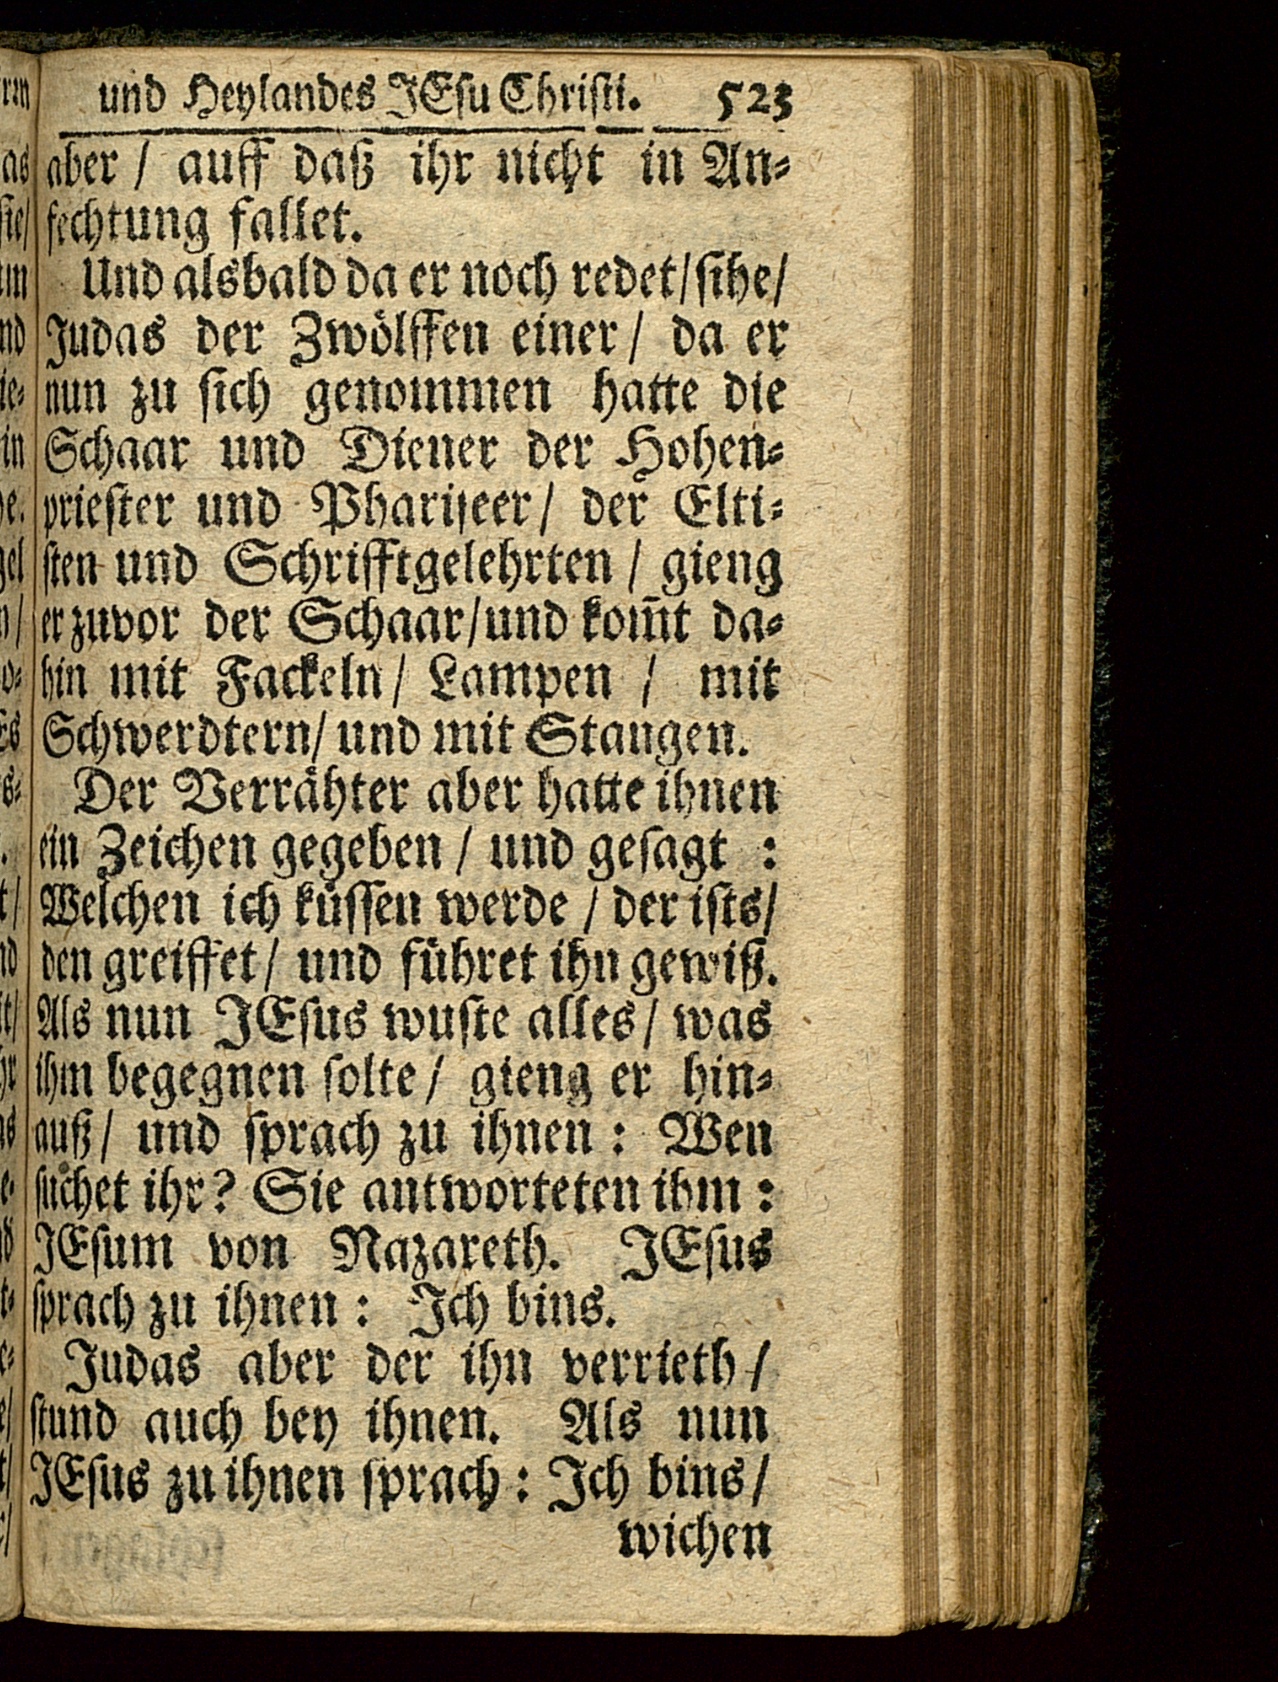 und Heylandes JEsu Christi. 523
aber / auff daß ihr nicht in An-
fechtung fallet.
Und alsbald da er noch redet/ sihe/
Judas der Zwölffen einer / da er
nun zu sich genommen hatte die
Schaar und Diener der Hohen-
priester und Phariseer/ der Elti-
sten und Schrifftgelehrten / gieng
er zuvor der Schaar/und kom̃t da-
hin mit Fackeln/ Lampen / mit
Schwerdtern/ und mit Stangen.
Der Verrähter aber hatte ihnen
ein Zeichen gegeben / und gesagt :
Welchen ich küssen werde / der ists/
den greiffet/ und führet ihn gewiß.
Als nun JEsus wuste alles/ was
ihm begegnen solte/ gieng er hin-
auß/ und sprach zu ihnen : Wen
suchet ihr? Sie antworteten ihm :
JEsum von Nazareth. JEsus
sprach zu ihnen : Ich bins.
Judas aber der ihn verrieth /
stund auch bey ihnen. Als nun
JEsus zu ihnen sprach : Ich bins/
wichen